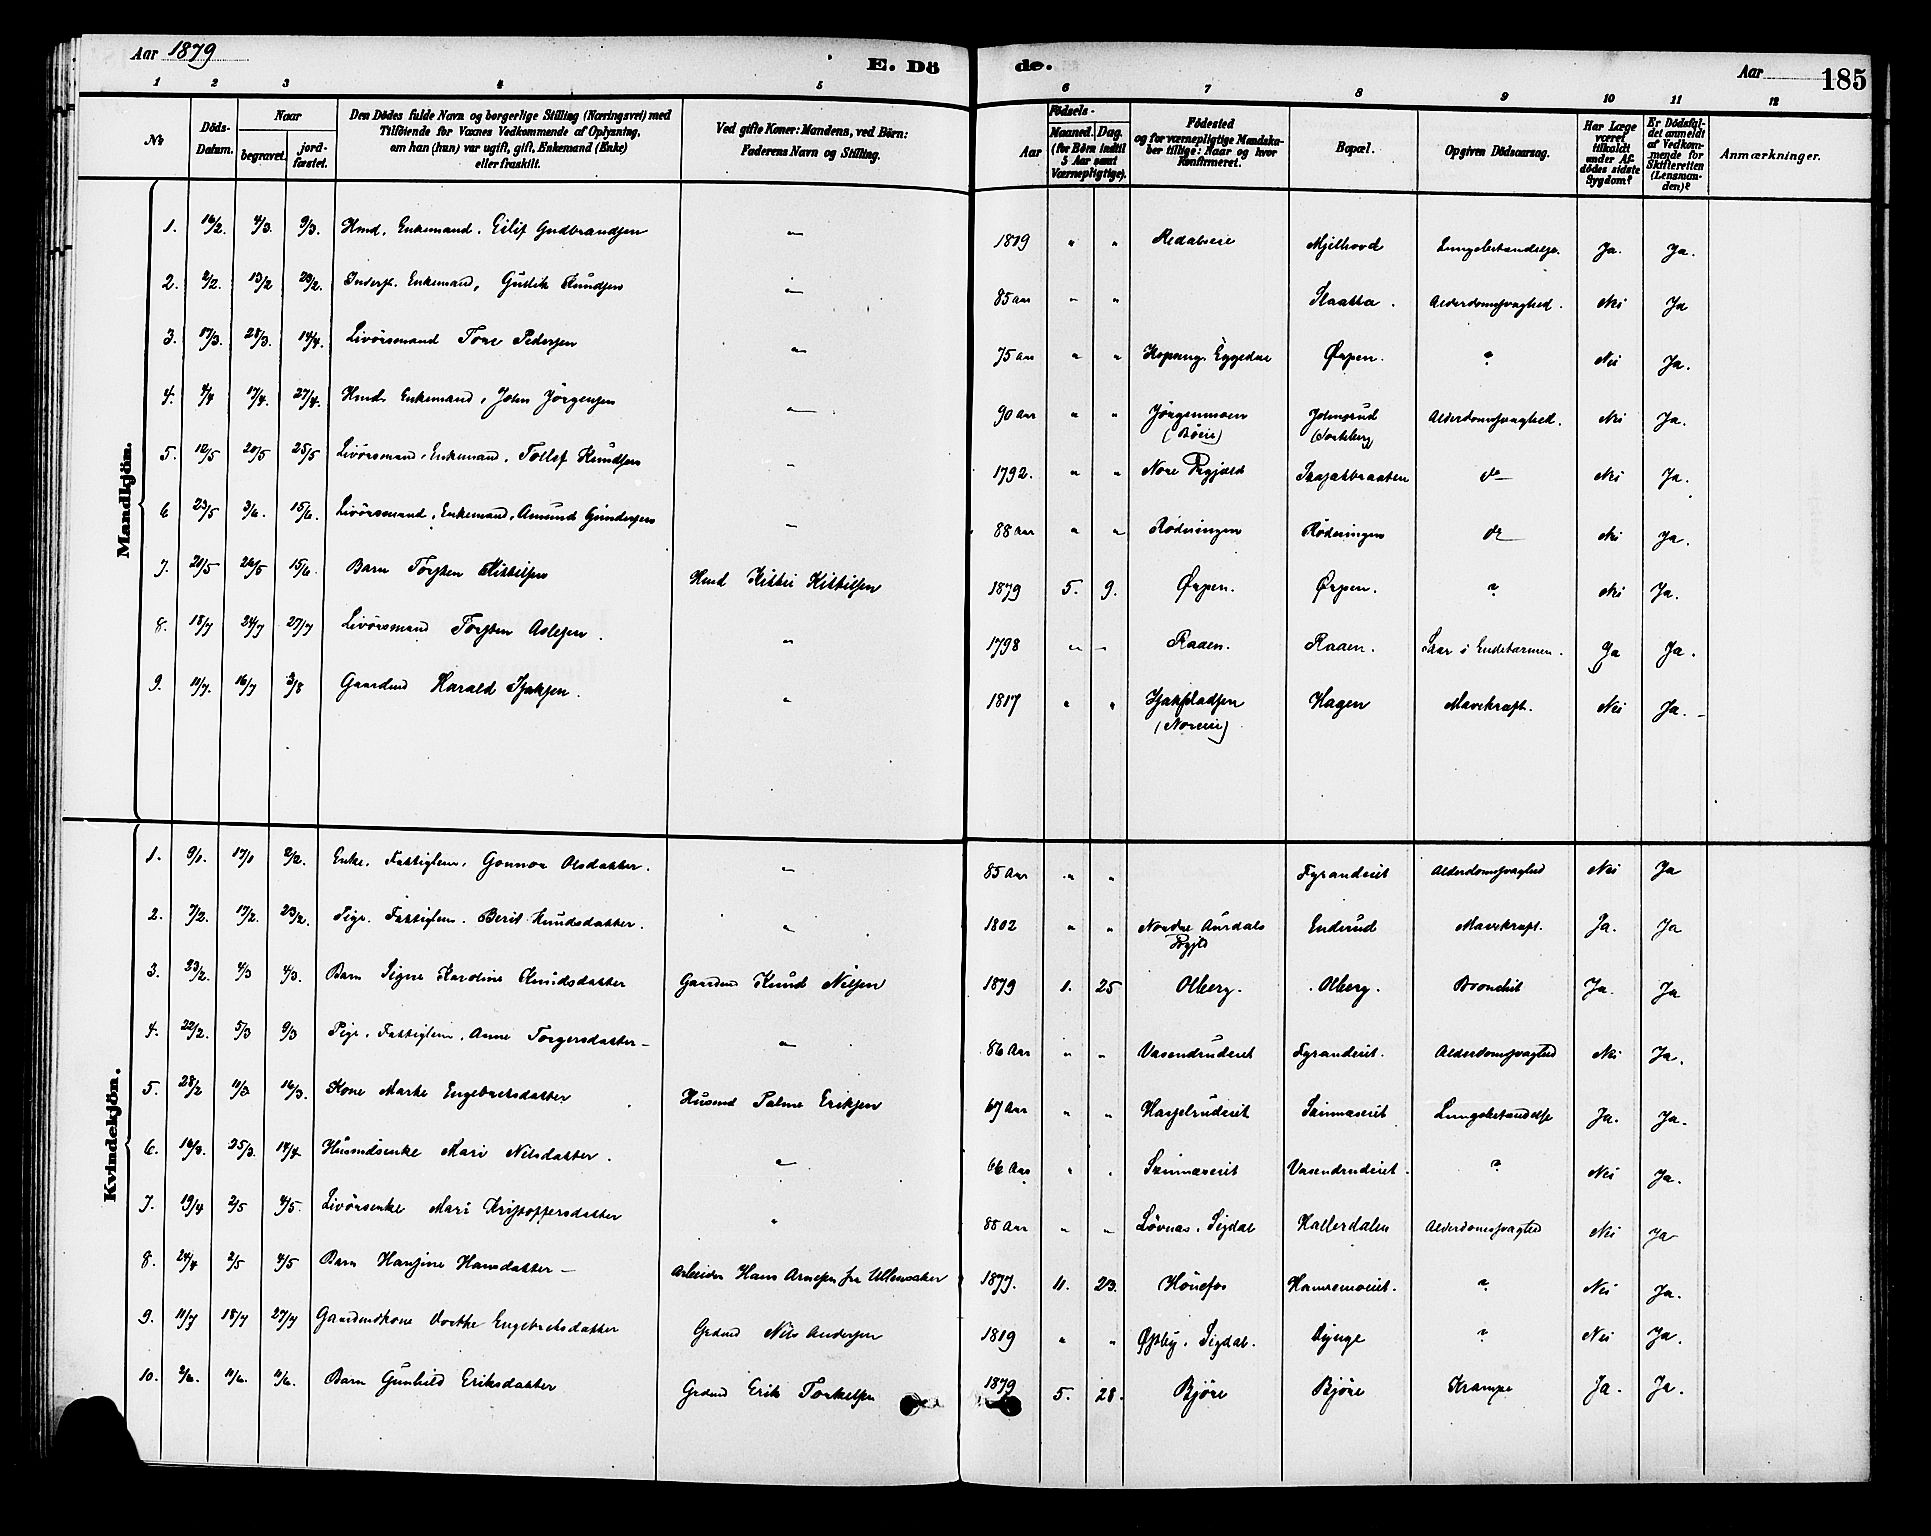 Aar 1879
E. Dö de.
Aar 185
1 2 3 4 5 6 7 8 9 10 11 12
No.
Döds-Datum.
Naar
begravet.
jord-fæstet.
Den Dödes fulde Navn og borgerlige Stilling (Næringsvei) med
Tilföiende for Voxnes Vedkommende af Oplysning,
om han (hun) var ugift, gift, Enkemand (Enke)
eller fraskilt.
Ved gifte Koner: Mandens, ved Börn:
Faderens Navn og Stilling.
Födsels-
Aar
Maaned. Dag.
(for Börn indtil
5 Aar samt
Værnepligtige).
Födested
og for værnepligtige Mandska-
ber tillige: Naar og hvor
Konfirmeret.
Bopæl.
Opgiven Dödsaarsag.
Har Læge
været
tilkaldt
under Af-
dödes sidste
Sygdom?
Er Dödsfal-
det anmeldt
af Vedkom-
mende for
Skifteretten
(Lensman-
den)?
Anmærkninger.
Mandkjön.
1. 16/2. 4/3. 9/3. Hmd. Enkemand. Eilif Gudbrandsen " 1819 " " Redalseie Mjelhovd Lungebetændelse. Ja. Ja.
2. 2/2. 13/2 23/2. Inderst. Enkemand, Gudik Knudsen " 85 Aar " " Slaatta. Alderdomssvaghed. Nei Ja
3. 17/3. 28/3. 14/4. Livörsmand Tore Pedersen " 75 Aar " " Kopseng. Eggedal Ørpen. ? Nei Ja.
4. 4/4 17/4. 27/4. Hmd. Enkemand, John Jörgensen " 90 Aar " " Jörgenmoen Johnsrud Alderdomssvaghed. Nei Ja.
5. 12/5 20/5 25/5 Livörsmand, Enkemand. Tollef Knudsen " 1792. " " Nore Prgjæld do Nei Ja.
6 23/5 3/6. 15/6. Livörsmand, Enkemand, Amund Gundersen " 88 Aar " " Röderingen Röderingen do Nei Ja.
7. 20/5 26/5 15/6. Barn Torsten Kittilsen Hmd Kittil Kittilsen 1879 5. 9. Ørpen. Ørpen. ? Nei Ja.
8. 18/7 24/7 27/7 Livörsmand Torsten Aslesen. " 1798 " " Raaen. Raaen. Saar i Endetarmen. Ja Ja.
9. 11/7. 16/7 3/8 Gaardmd Harald Isaksen. " 1817 " " Isakpladsen (Noreeie) Hagen Mavekræft. Nei Ja.
Kvindekjön.
1. 9/1. 17/1 2/2. Enke. Fattiglem. Gonnor Olsdatter. " 85 Aar " " Fyrandeiet Alderdomssvaghed Nei Ja
2. 7/2. 17/2. 23/2. Pige. Fattiglem. Berit Knudsdatter. " 1802 " " Nordre Aurdals Prgjld Enderud Mavekræft. Ja. Ja
3. 23/2. 4/3 4/3. Barn Signe Karoline Knudsdatter Gaardmd Knud Nilsen 1879 1. 25 Olberg. Olberg. Bronchit Ja. Ja
4. 22/2. 5/3 9/3 Pige. Fattiglem. Anne Torgersdatter " 86 Aar " " Vasendrudeiet Fyrandeiet. Alderdomssvaghed Nei Ja.
5. 28/2 11/3 16/3. Kone Marte Engebretsdatter Husmd Palme Eriksen 67 Aar " " Hasselrudeiet Skinnæseiet Lungebetændelse Ja. Ja.
6. 16/3. 25/3. 14/4. Husmdsenke Mari Nilsdatter. " 66 Aar " " Skinnæseiet Vasendrudeiet. ? Nei Ja.
7. 19/4 2/5 4/5. Livörsenke Mari Kristoffersdatter " 88 Aar " " Løvnæs. Sigdal Hallerdalen Alderdomssvaghed Nei Ja
8. 24/4 2/5 4/5 Barn Hansine Hansdatter Arbeider Hans Arnesen fra Ullensaker 1877. 11. 23. Hönefos Hamremoeiet. ? Nei Ja.
9. 11/7 18/7 27/7 Gaardmdkone Dorthe Engebretsdatter Grdmd Nils Andersen 1819 " " Øfsby. Sigdal. Dynge ? Nei Ja.
10. 3/6. 11/6. 11/6. Barn Gunhild Eriksdatter Grdmd Erik Torkelsen 1879 5. 28. Björe Björe Krampe Ja. Ja.